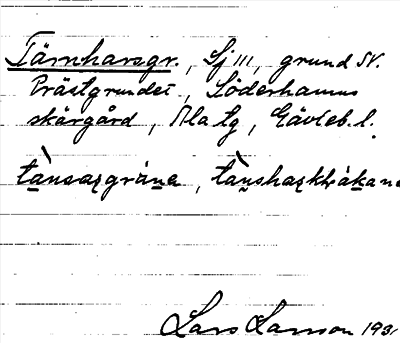 Tärnharsgr., Sj III, grund SV.
Prästgrundet, Söderhamns
skärgård, Ala tg, Gävleb.l.
tànsaʂgràne, tànshaʂkhàkane
Lars Larsson 193